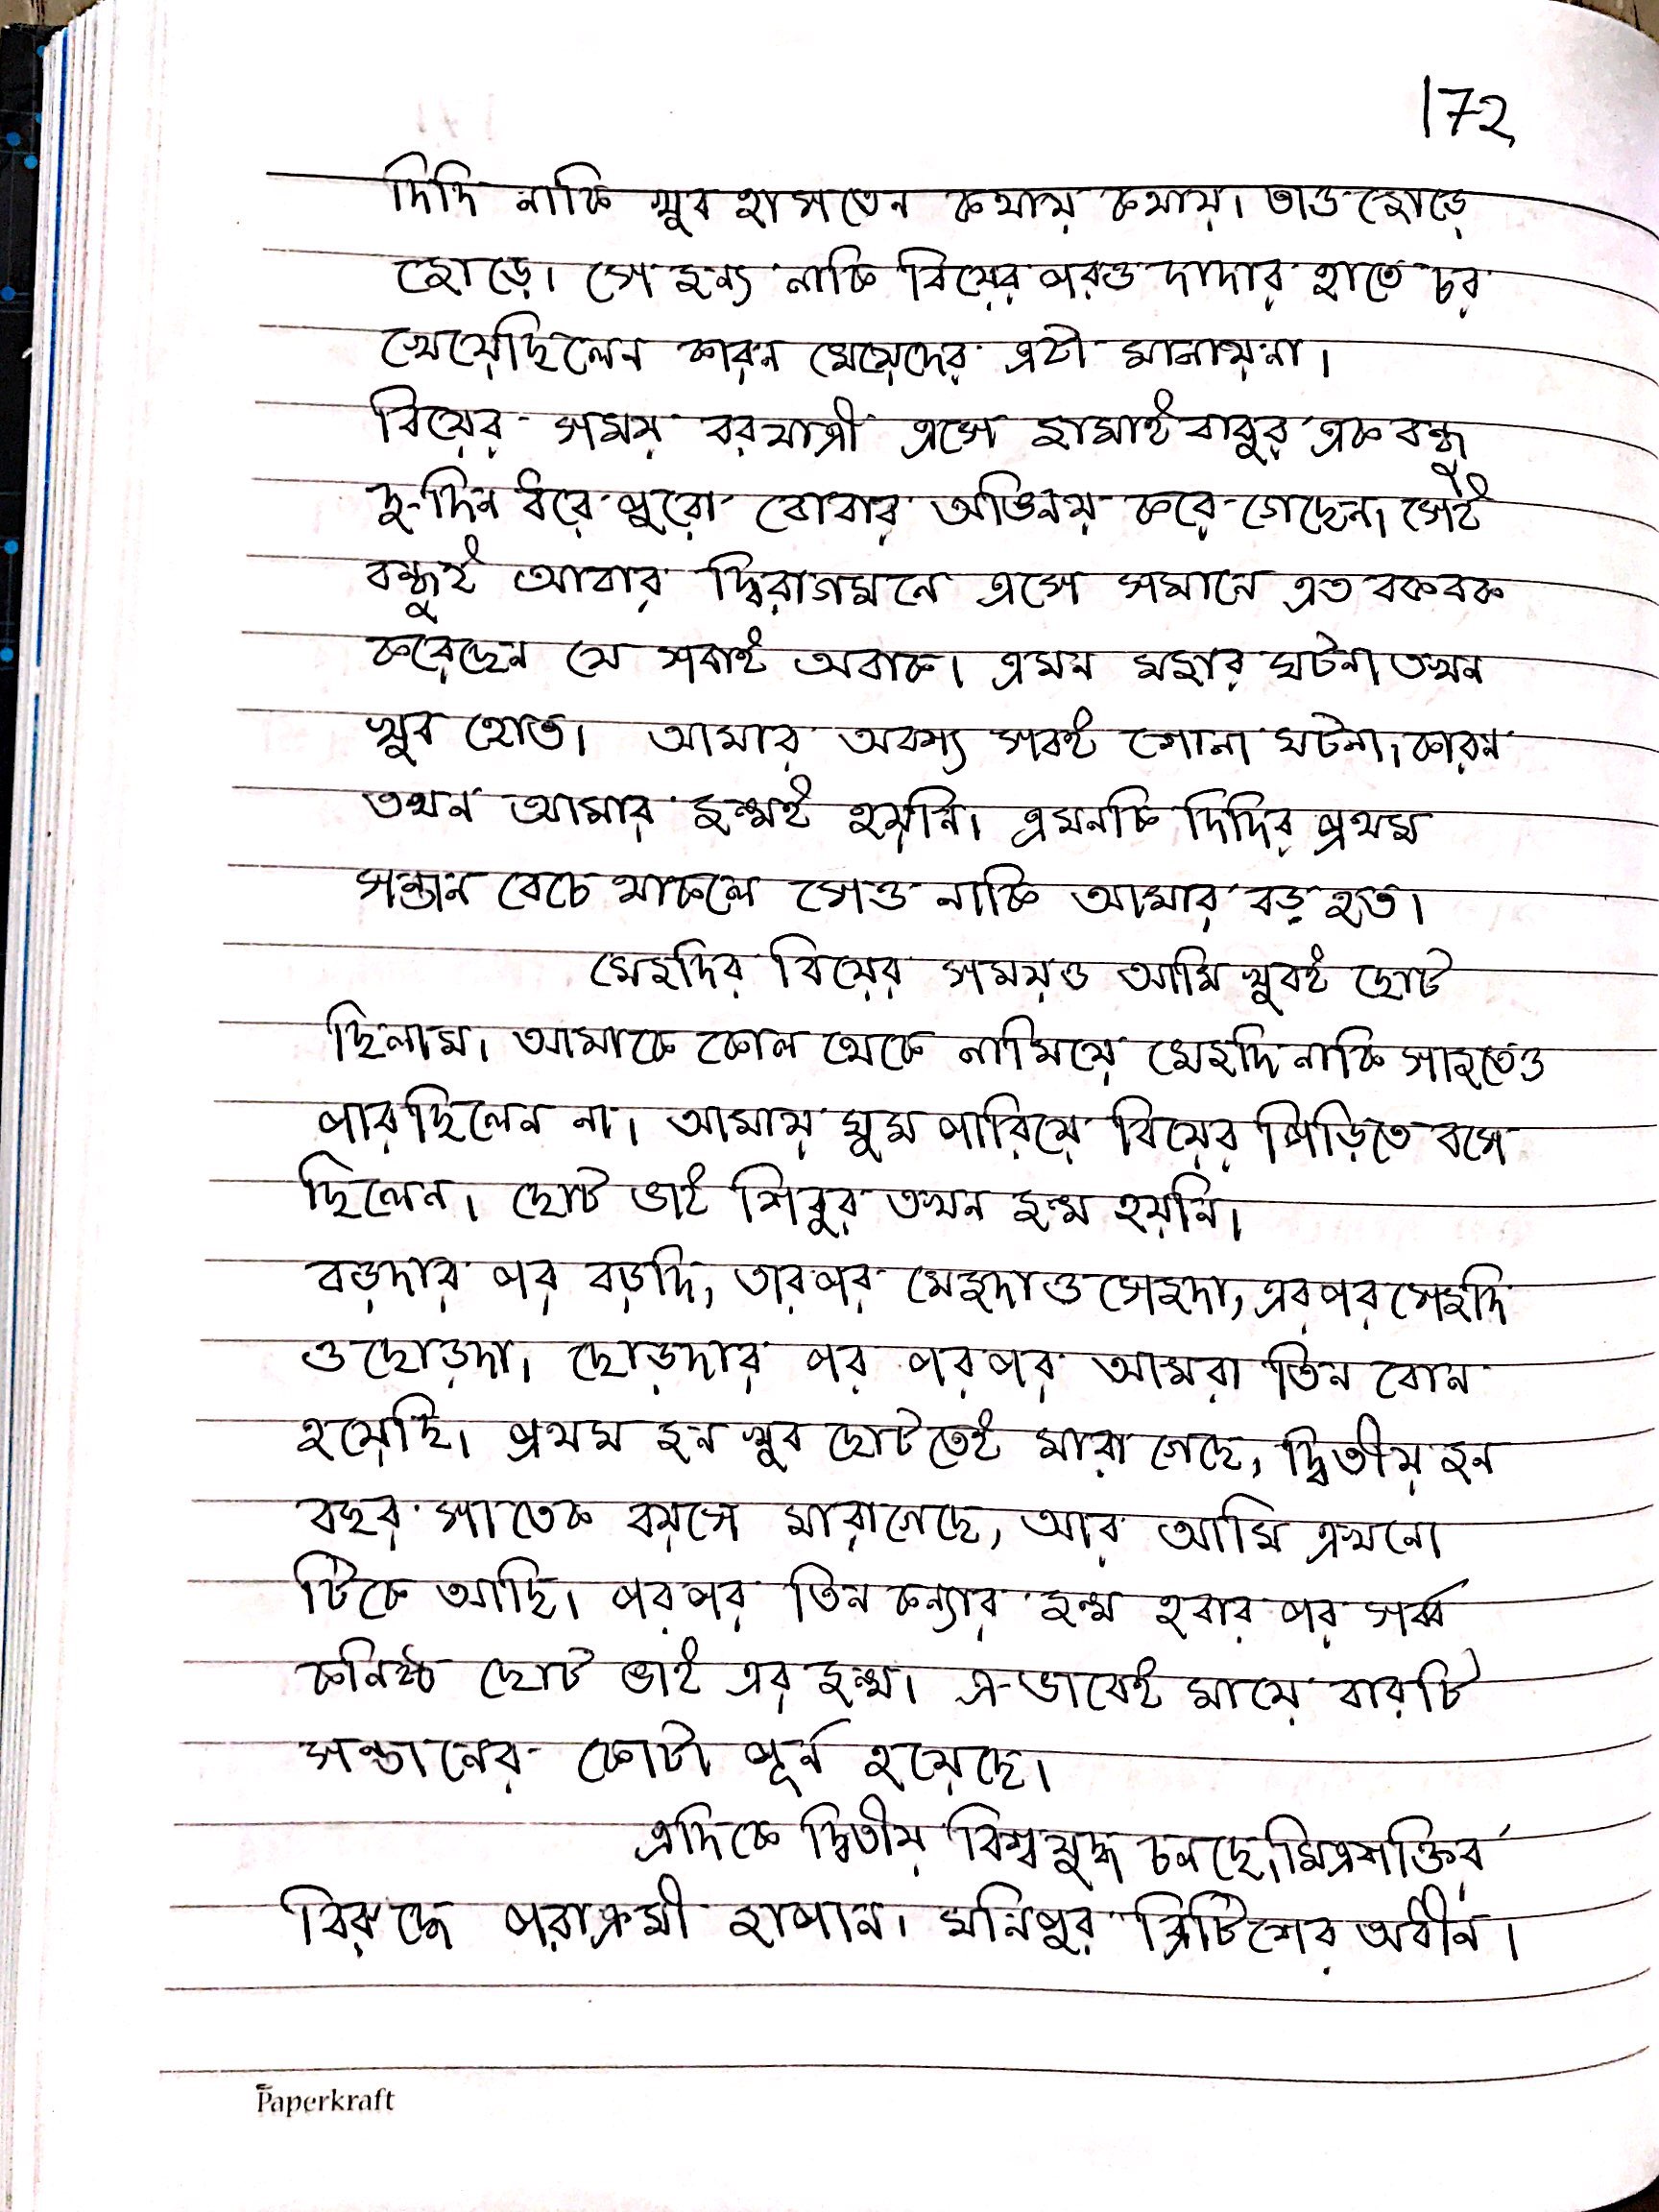 172
দিদি নাকি খুব হাসতেন কথায় কথায়। তাও জোড়ে
জোড়ে। সে জন্য নাকি বিয়ের পরও দাদার হাতে চর
খেয়েছিলেন কারন মেয়েদের এটা মানায়না।
বিয়ের সময় বরযাত্রী এসে জামাই বাবুর এক বন্ধু
দু-দিন ধরে পুরো বোবার অভিনয় করে গেছেন। সেই
বন্ধুই আবার দ্বিরাগমনে এসে সমানে এত বকবক
করেছেন যে সবাই অবাক। এমন মজার ঘটনা তখন
খুব হোত। আমার অবশ্য সবই শোনা ঘটনা। কারন
তখন আমার জন্মই হয়নি। এমনকি দিদির প্রথম
সন্তান বেচে থাকলে সেও নাকি আমার বড় হত।
মেজদির বিয়ের সময়ও আমি খুবই ছোট
ছিলাম। আমাকে কোল থেকে নামিয়ে মেজদি নাকি সাজতেও
পারছিলেন না। আমায় ঘুম পারিয়ে বিয়ের পিড়িতে বসে
ছিলেন। ছোট ভাই শিবুর তখন জন্ম হয়নি।
বড়দার পর বড়দি, তারপর মেজদা ও সেজদা, এরপর সেজদি
ও ছোড়দা। ছোড়দার পর পরপর আমরা তিন বোন
হয়েছি। প্রথম জন খুব ছোটতেই মারা গেছে, দ্বিতীয় জন
বছর সাতেক বয়সে মারাগেছে, আর আমি এখনো
টিকে আছি। পরপর তিন কন্যার জন্ম হবার পর সর্ব্ব
কনিষ্ঠ ছোট ভাই এর জন্ম। এ-ভাবেই মায়ে বারটি
সন্তানের কোটা পূর্ন হয়েছে।
এদিকে দ্বিতীয় বিশ্বযুদ্ধ চলছে। মিত্রশক্তির
বিরুদ্ধে পরাক্রমী জাপান। মনিপুর ব্রিটিশের অধীন।
Paperkraft